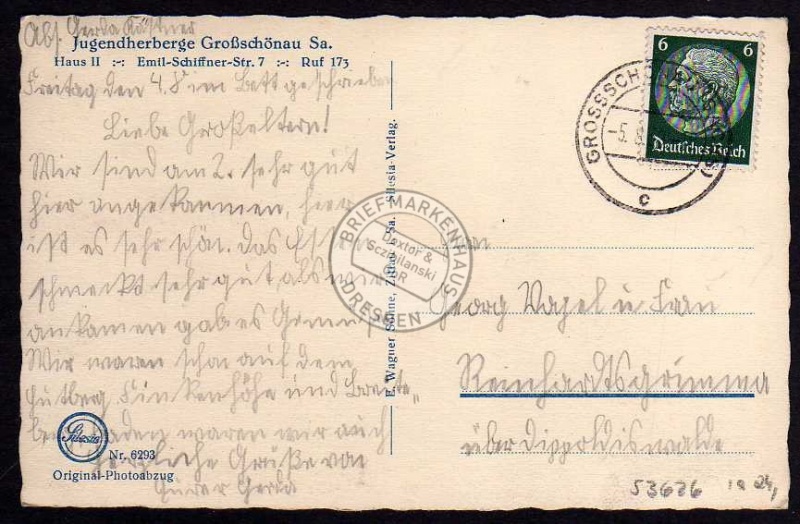 Abs. Gerda Kästner
Jugendherberge Großschönau Sa.
Haus II :-: Emil-Schiffner-Str. 7 :-: Ruf 173
Freitag den 4.8. im Bett geschrieben
Liebe Großeltern!
Wir sind am 2. sehr gut
hier angekammen, hier
ist es sehr schön. Das Essen
schmeckt sehr gut, als wir
ankamen gab es
Wir waren schon auf dem
Hutberg Finkenhöhe und Breite-
berg. Baden waren wir auch
Herzliche Grüße von
Eurer Gerda
Silesia
Nr. 6293
Original-Photoabzug
E. Wagner Söhne, Zittau i. Sa. Silesia-Verlag.
6 6
Deutsches Reich
GROSSSCHÖNAU
-5.
c
BRIEFMARKENHAUS
Dextor &
Sczibilanski
GbR
DRESDEN
Georg Vogel u Frau
Reinhardtsgrimma
über Dippoldiswalde
53626